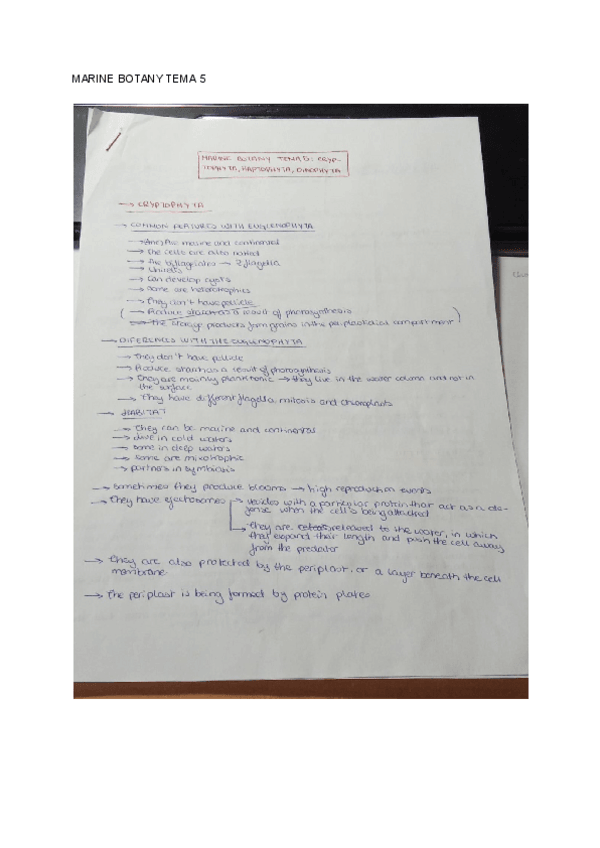 MARINE BOTANY TEMA 5
MARINE BOTANY TEMA 5: CRYP-
TOPHYTA, HAPTOPHYTA, DINOPHYTA
→ CRYPTOPHYTA
→ COMMON FEATURES WITH EUGLENOPHYTA
→ They are marine and continental
→ The cells are also naked
→ Are biflagelates → 2 flagella
→ Unicells
→ Can develop cysts
→ Some are heterotrophics
→ They don't have pellicle
(→ Produce starch as a result of photosynthesis
→ The storage products form grains in the periplastidial compartment)
→ DIFERENCES WITH THE EUGLENOPHYTA
→ They don't have pellicle
→ Produce starch as a result of photosynthesis
→ They are mainly planktonic → they live in the water column and not in
the surface
→ They have different flagella, mitosis and chloroplasts
→ HABITAT
→ They can be marine and continental
→ Live in cold waters
→ Some in deep waters
→ Some are mixotrophic
→ partners in symbiosis
→ Sometimes they produce blooms → high reproduction events
→ They have ejectosomes → vesicles with a particular protein that act as a de-
fense when the cell is being attacked
→ they are released to the water, in which
they expand their length and push the cell away
from the predator
→ They are also protected by the periplast, or a layer beneath the cell
membrane
→ The periplast is being formed by protein plates